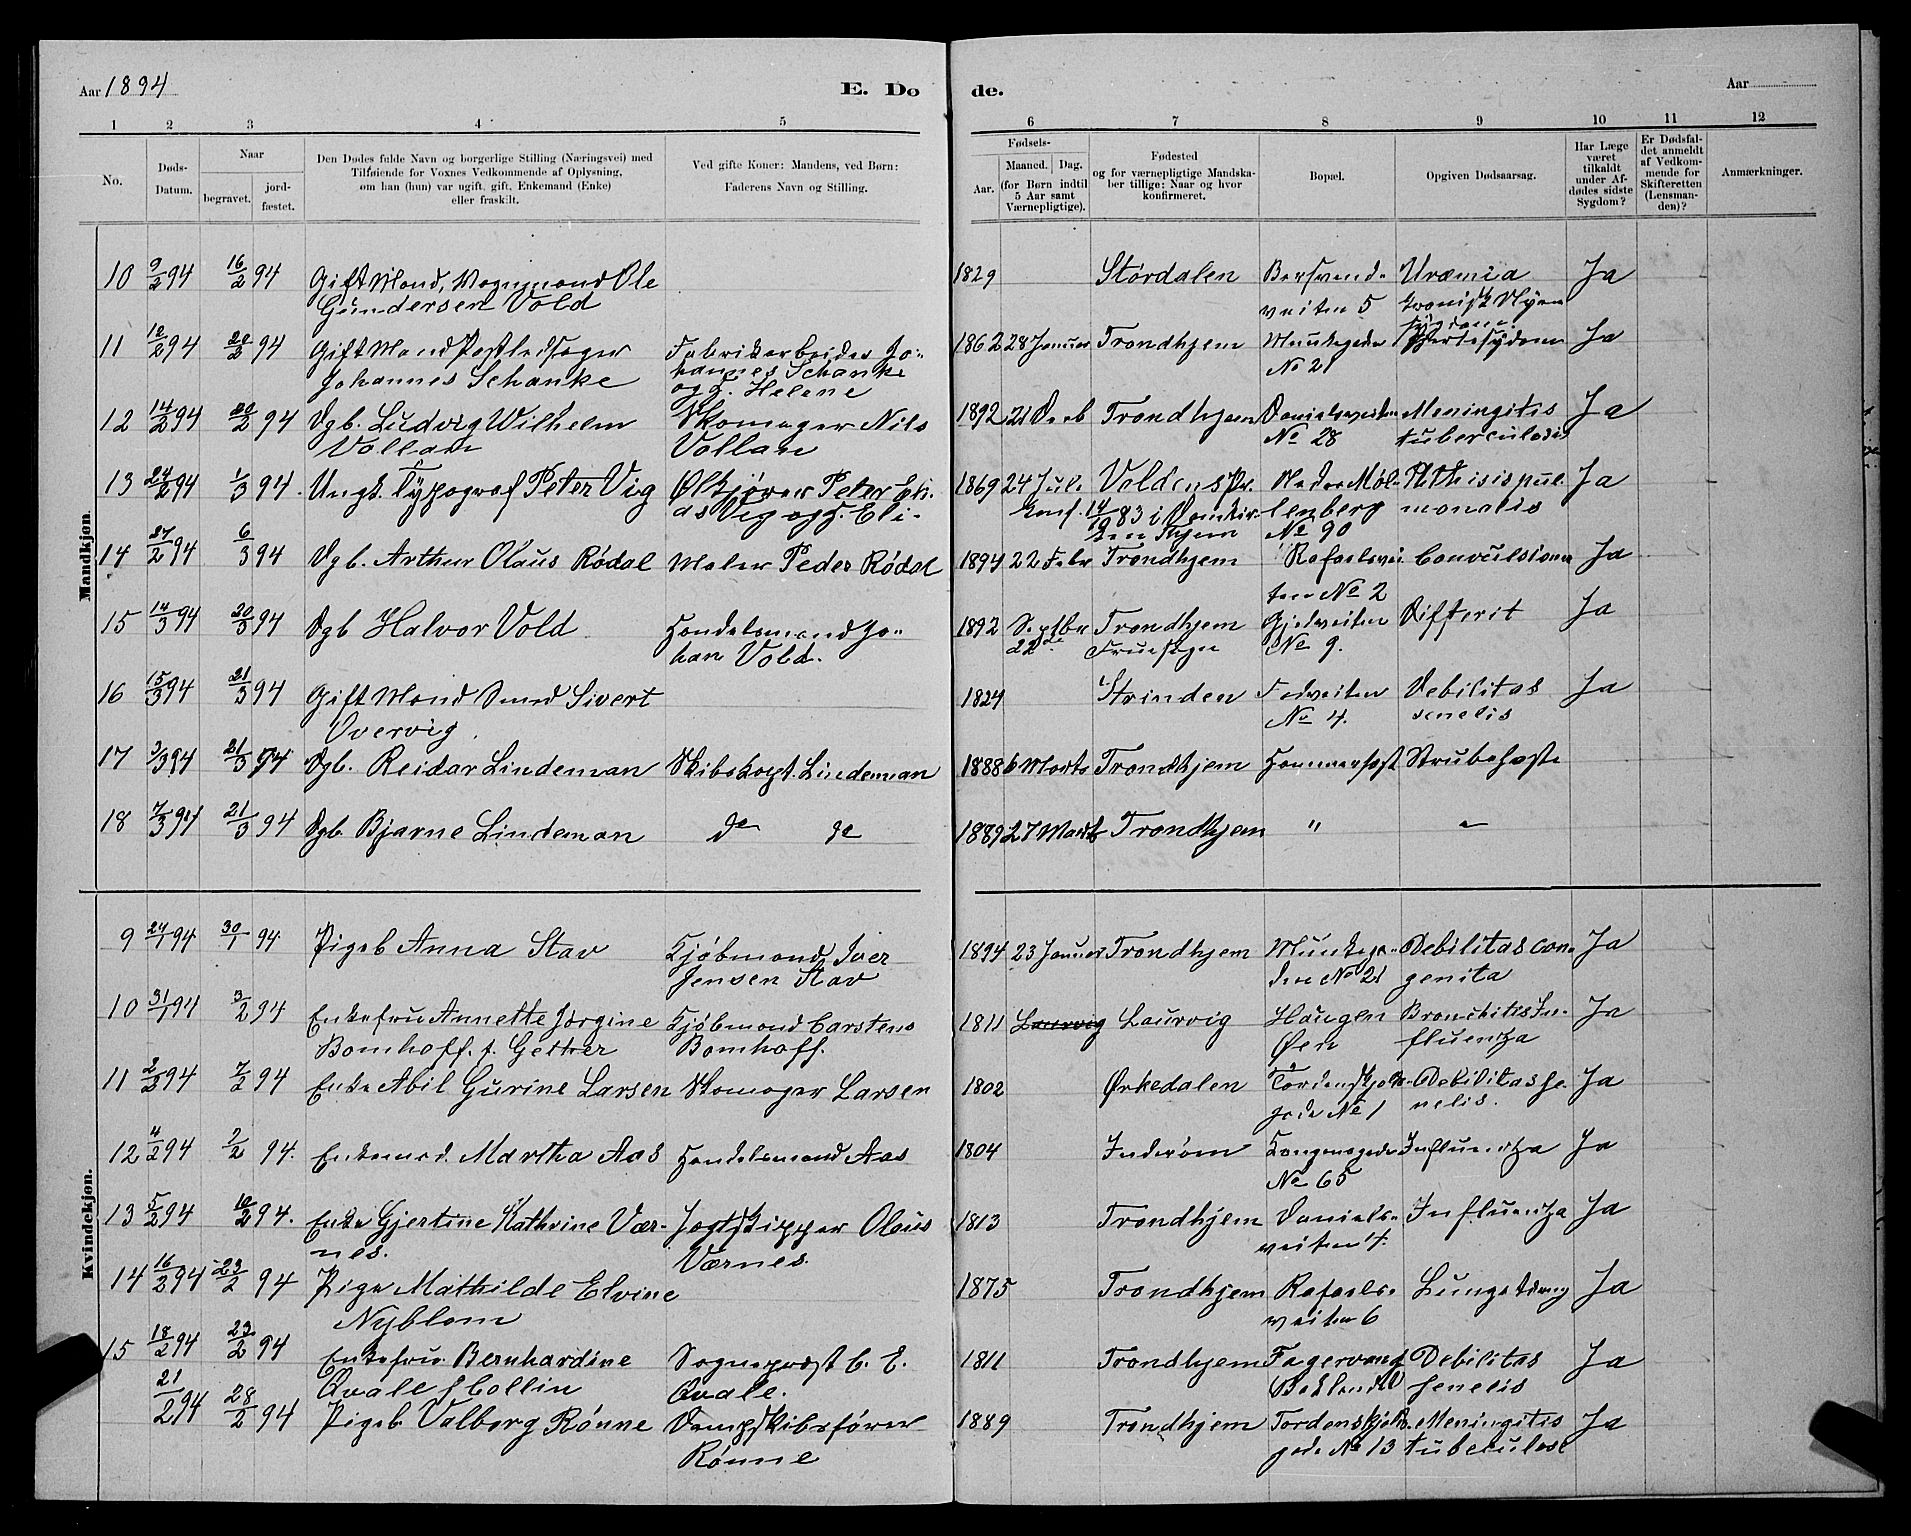 Aar 1894
E. Dø
de.
Aar
1 2 3 4 5 6 7 8 9 10 11 12
No.
Døds-
Datum.
Naar
begravet.
jord-
fæstet.
Den Dødes fulde Navn og borgerlige Stilling (Næringsvei) med
Tilføiende for Voxnes Vedkommende af Oplysning,
om han (hun) var ugift, gift, Enkemand (Enke)
eller fraskilt.
Ved gifte Koner: Mandens, ved Børn:
Faderens Navn og Stilling.
Fødsels-
Aar.
Maaned. Dag.
(for Børn indtil
5 Aar samt
Værnepligtige).
Fødested
og for værnepligtige Mandska-
ber tillige: Naar og hvor
konfirmeret.
Bopæl.
Opgiven Dødsaarsag.
Har Læge
været
tilkaldt
under Af-
dødes sidste
Sygdom?
Er Dødsfal-
det anmeldt
af Vedkom-
mende for
Skifteretten
(Lensman-
den)?
Anmærkninger.
Mandkjøn.
10 9/2 94 16/2 94 Gift Mand, Vognmand Ole 1829 Størdalen Uræmia Ja
Gundersen Vold veiten 5 kronisk Nyre
sygdom.
11 12/2 94 20/2 94 Gift Mand Johannes Fabrikarbeider Jo- 1862 28 Januar Trondhjem Munkegaden Hjertesygdom Ja
Johannes Schanke hannes Schanke No 21
og H. Helene
12 14/2 94 20/2 94 Dgb. Ludvig Wilhelm Skomager Nils 1892 21 Decb Trondhjem Danielsveiten Meningitis Ja
Vollan Vollan No 28 tuberculosis
13 24/2 94 1/3 94. Ungk. Typograf Peter Vig Ølkjører Peter Eli- 1869 24 Juli Voldens Pr. Nedre Møl- Phthisis pul- Ja
as Vig og H. Eli. Konf. 83 i Domkir- lenberg monalis
ken Thjem No 90
14 27/2 94 6/3 94 Dgb. Arthur Olaus Rødal Maler Peder Rødal 1894 22 Febr Trondhjem Rafaelsvei Convulsiones Ja
ten No 2
15 14/3 94 20/3 94 Dgb Halvor Vold Handelsmand Jo- 1892 Septbr Trondhjem Gjedveiten Difterit Ja
han Vold. 22de Fruesogn No 9.
16 15/3 94 21/3 94 Gift Mand Smed Sivert 1824 Strinden Fedveiten Debilitas Ja
Overvig. No 4. senelis
17 3/3 94 21/3 94 Dgb. Reidar Lindeman Skibskapt. Lindeman 1888 6 Marts Trondhjem Hammerfest Strubehoste
18 7/3 94 21/3 94 Dgb. Bjarne Lindeman do do 1889 27 Marts Trondhjem " "
Kvindekjøn.
9 24/1 94 30/1 94 Pigeb Anna Stav Kjøbmand Iver 1894 23 Januar Trondhjem Munkega- Debilitas con- Ja
Jensen Stav den No 21 genita
10 31/1 94 3/2 94 Enkefru Annette Jørgine Kjøbmand Carstens 1811 Laurvig Laurvig Haugen Bronchitis In- Ja
Bomhoff. f. Gether Bomhoff. Øen fluentza
11 2/2 94 7/2 94 Enke Abil Gurine Larsen Skomager Larsen 1802 Ørkedalen Tordenskjolds- Debilitas se- Ja
gade No 1 nelis.
12 4/2 94 7/2 94. Enkemad. Martha Aas Handelsmand Aas 1804 Inderøen Kongensgade Influentza Ja
No 65
13 5/2 94 10/2 94. Enke Gjertine Kathrine Vær- Jagtskipper Olaus 1813 Trondhjem Daniels- Influentza Ja
nes. Værnes. veiten 4.
14 16/2 94 23/2 94 Pige Mathilde Elvine 1875 Trondhjem Rafaels- Lungetæring Ja
Nyblom veiten 6
15 18/2 94 23/2 94 Enkefru Bernhardine Sogneprest C. E. 1811 Trondhjem Debilitas Ja
Qvale f Collin Qvale. senelis
21/2 94 28/2 94 Pigeb Valborg Rønne Dampskibsfører 1889 Trondhjem Tordenskjolds- Meningitis Ja
Rønne gade No 13 tuberculose